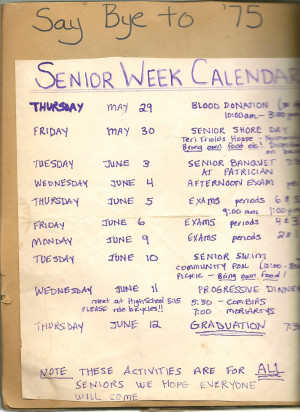 Say Bye to '75
SENIOR WEEK CALENDAR
THURSDAY MAY 29 BLOOD DONATION
10:00am - 3:00
FRIDAY MAY 30 SENIOR SHORE DAY
Teri Triolo's House -
Bring own food etc!
TUESDAY JUNE 3 SENIOR BANQUET 7:30
AT PATRICIAN
WEDNESDAY JUNE 4 AFTERNOON EXAM
THURSDAY JUNE 5 EXAMS periods 6 &
9:00 am 1:00 pm
FRIDAY JUNE 6 EXAMS periods 4 & 3
MONDAY JUNE 9 EXAMS periods 2
TUESDAY JUNE 10 SENIOR SWIM
COMMUNITY POOL
PICNIC - Bring own food!
WEDNESDAY JUNE 11 PROGRESSIVE DINNER
meet at High School 5:15 5:30 -
PLEASE ride bicycles!! 7:00 MORIARTYS
THURSDAY JUNE 12 GRADUATION
NOTE THESE ACTIVITIES ARE FOR ALL
SENIORS WE HOPE EVERYONE
WILL COME